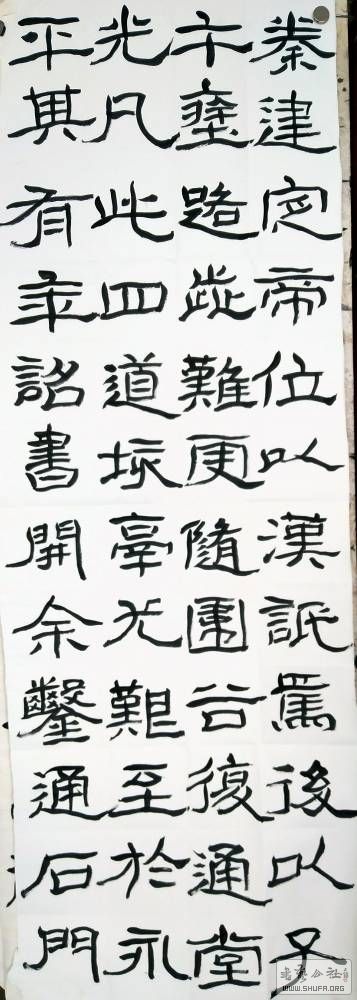 秦建定帝位以漢詆焉後以子
午塗路歰難更隨圍谷復通堂
光凡此四道垓鬲尤艱至於永
平其有年詔書開余鑿通石門
WWW.SHUFA.ORG